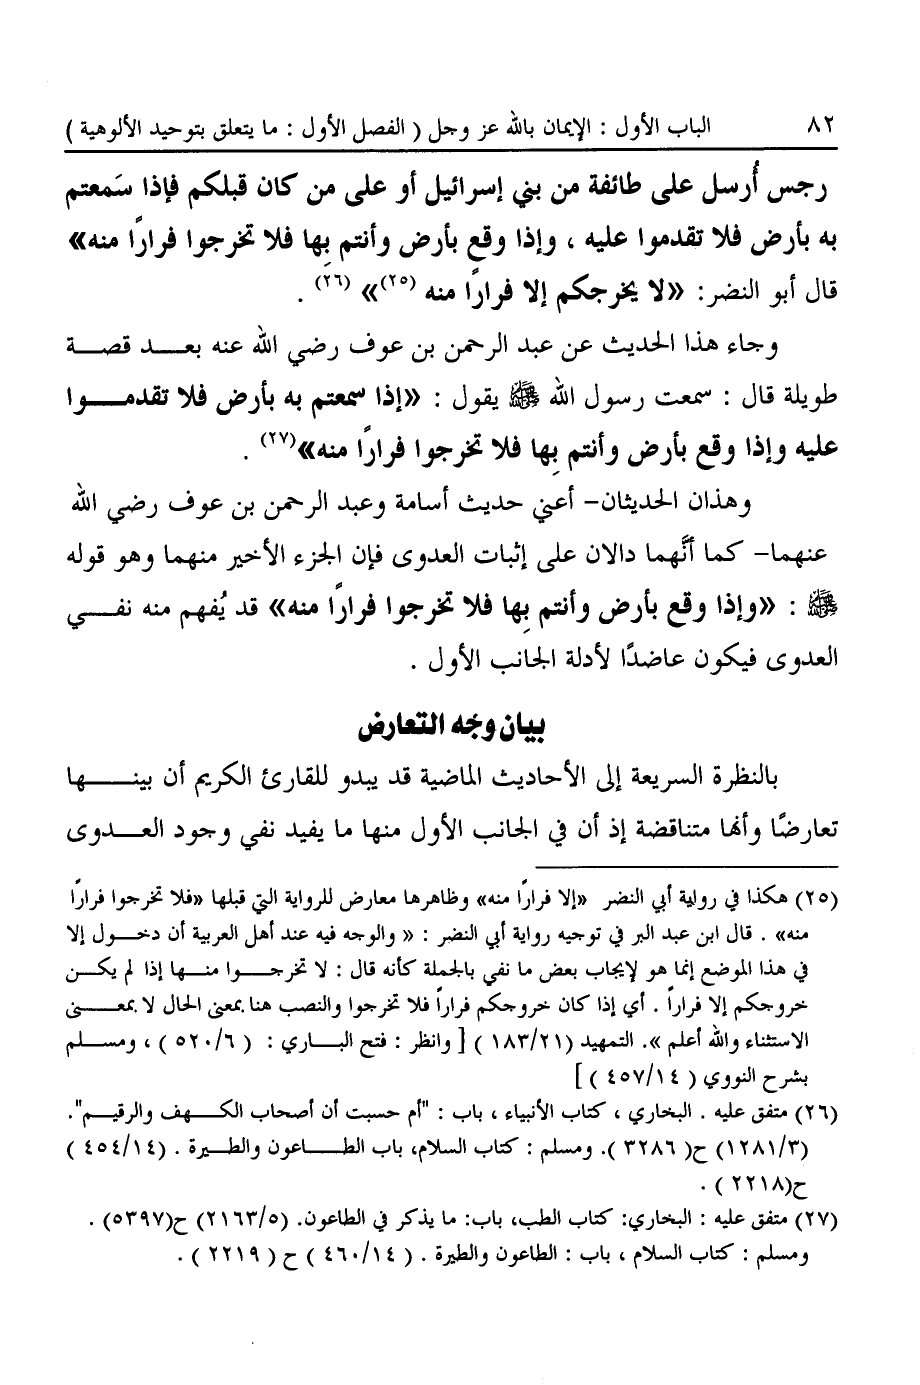 ٨٢ الباب الأول : الإيمان بالله عز وجل ( الفصل الأول : ما يتعلق بتوحيد الألوهية )
رجس أُرسل على طائفة من بني إسرائيل أو على من كان قبلكم فإذا سَمعتم
به بأرض فلا تقدموا عليه ، وإذا وقع بأرض وأنتم بِها فلا تخرجوا فرارًا منه»
قال أبو النضر: «لا يخرجكم إلا فرارًا منه (٢٥)» (٢٦) .
وجاء هذا الحديث عن عبد الرحمن بن عوف رضي الله عنه بعــد قصــة
طويلة قال : سمعت رسول الله ﷺ يقول : «إذا سمعتم به بأرض فلا تقدمــوا
عليه وإذا وقع بأرض وأنتم بِها فلا تخرجوا فرارًا منه»(٢٧) .
وهذان الحديثان– أعني حديث أسامة وعبد الرحمن بن عوف رضي الله
عنهما– كما أنَّهما دالان على إثبات العدوى فإن الجزء الأخير منهما وهو قوله
ﷺ : «وإذا وقع بأرض وأنتم بِها فلا تخرجوا فرارًا منه» قد يُفهم منه نفــي
العدوى فيكون عاضدًا لأدلة الجانب الأول .
بيان وجْه التعارض
بالنظرة السريعة إلى الأحاديث الماضية قد يبدو للقارئ الكريم أن بينــها
تعارضًا وأنها متناقضة إذ أن في الجانب الأول منها ما يفيد نفي وجود العــدوى
(٢٥) هكذا في رواية أبي النضر «إلا فرارًا منه» وظاهرها معارض للرواية التي قبلها «فلا تخرجوا فرارًا
منه» . قال ابن عبد البر في توجيه رواية أبي النضر : « والوجه فيه عند أهل العربية أن دخــول إلا
في هذا الموضع إنما هو لإيجاب بعض ما نفي بالجملة كأنه قال : لا تخرجــوا منــها إذا لم يكــن
خروجكم إلا فراراً . أي إذا كان خروجكم فراراً فلا تخرجوا والنصب هنا بمعنى الحال لا بمعــنى
الاستثناء والله أعلم ». التمهيد (١٨٣/٢١ ) [ وانظر : فتح البــاري : ( ٥٢٠/٦ ) ، ومســلم
بشرح النووي ( ٤٥٧/١٤ ) ]
(٢٦) متفق عليه . البخاري ، كتاب الأنبياء ، باب : "أم حسبت أن أصحاب الكــهف والرقيــم".
(١٢٨١/٣) ح( ٣٢٨٦ ). ومسلم : كتاب السلام، باب الطــاعون والطــيرة . (٤٥٤/١٤ )
ح(٢٢١٨ ) .
(٢٧) متفق عليه : البخاري: كتاب الطب، باب: ما يذكر في الطاعون. (٢١٦٣/٥) ح(٥٣٩٧) .
ومسلم : كتاب السلام ، باب : الطاعون والطيرة . ( ٤٦٠/١٤ ) ح ( ٢٢١٩ ) .